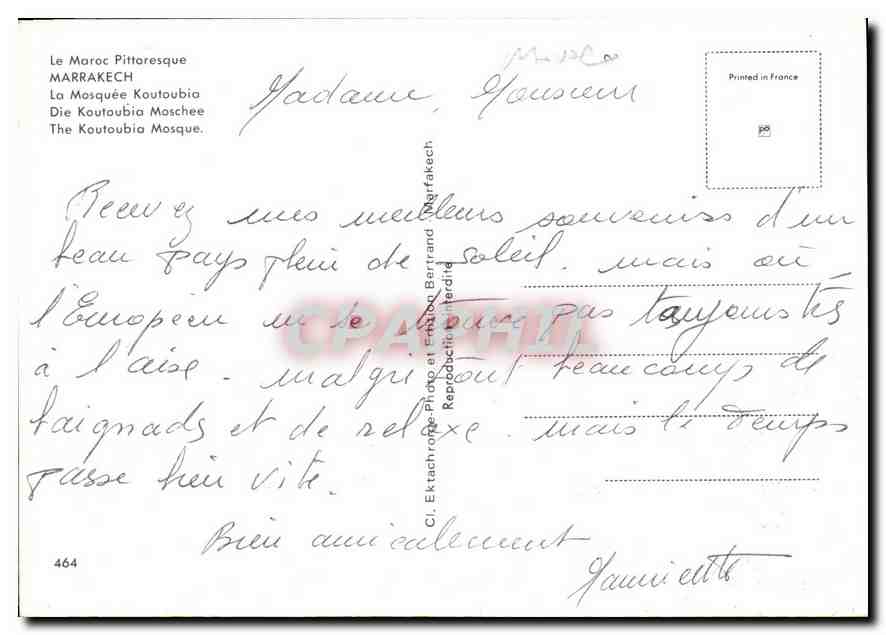 Le Maroc Pittoresque
MARRAKECH
La Mosquée Koutoubia
Die Koutoubia Moschee
The Koutoubia Mosque.
Printed in France
Madame, Monsieur
Recevez mes meilleurs souvenirs d'un
beau pays plein de soleil. mais où
l'Européen ne se trouve pas toujours très
à l'aise. malgré tout beaucoup de
baignads et de relaxe. mais le temps
passe bien vite.
Bien amicalement
Cl. Ektachrome-Photo et Edition Bertrand Marrakech
Reproduction interdite
CPAPHIL
464